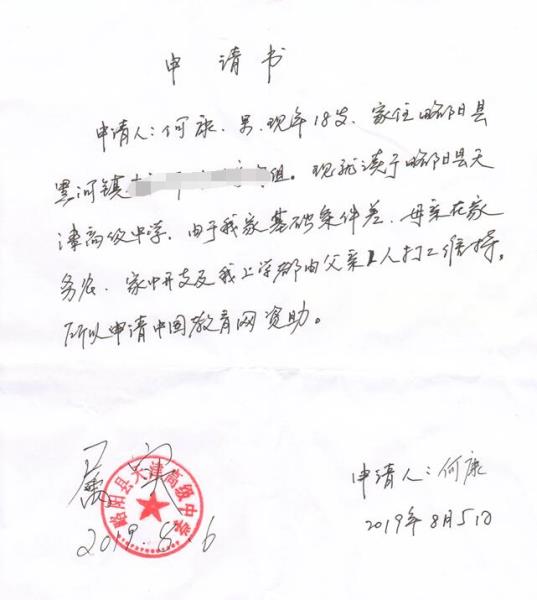 申请书
申请人：何康．男．现年18岁．家住略阳县
黑河镇 组。现就读于略阳县天
津高级中学．由于我家基础条件差．母亲在家
务农．家中开支及我上学都由父亲1人打工维持。
所以申请中国教育网资助。
属实
略阳县天津高级中学
2019.8.6
申请人：何康
2019年8月5日